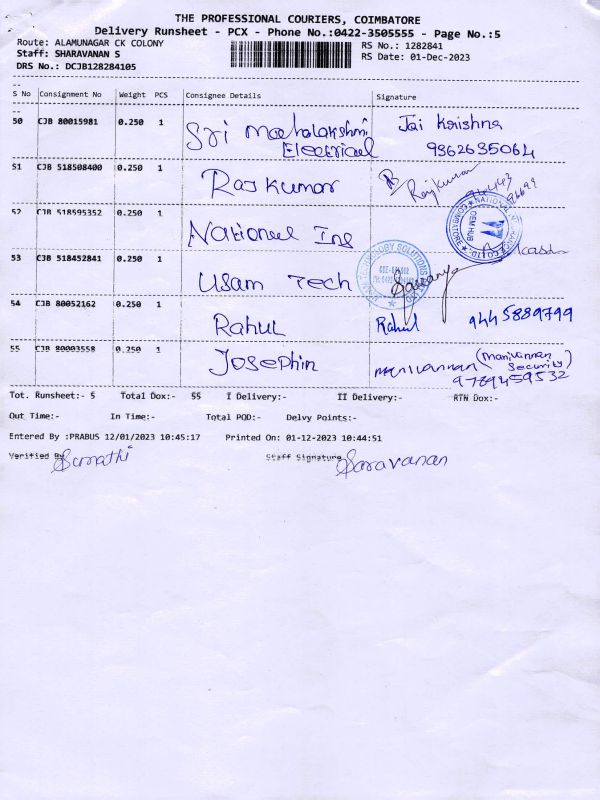 THE PROFESSIONAL COURIERS, COIMBATORE
Delivery Runsheet - PCX - Phone No.:0422-3505555 - Page No.:5
Route: ALAMUNAGAR CK COLONY
RS No.: 1282841
Staff: SHARAVANAN S
RS Date: 01-Dec-2023
DRS No.: DCJB128284105
S No Consignment No Weight PCS Consignee Details Signature
50 CJB 80015981 0.250 1 Sri Mahalakshmi Electrical Jai Krishna
9362635064
51 CJB 518508400 0.250 1 Rajkumar Rajkumar
94443
96699
52 CJB 518595352 0.250 1 National Ins
NATIONAL
COIMBATORE
DSM HUB
53 CJB 518452841 0.250 1 Usam Tech Saranya
TECHNOLOGY SOLUTIONS
54 CJB 80052162 0.250 1 Rahul Rahul 9445889799
55 CJB 80003558 0.250 1 Josephin Manivannan (Manivannan
Security)
9789459532
Tot. Runsheet:- 5 Total Dox:- 55 I Delivery:- II Delivery:- RTN Dox:-
Out Time:- In Time:- Total POD:- Delvy Points:-
Entered By :PRABUS 12/01/2023 10:45:17 Printed On: 01-12-2023 10:44:51
Verified By Sumathi Staff Signature Saravanan